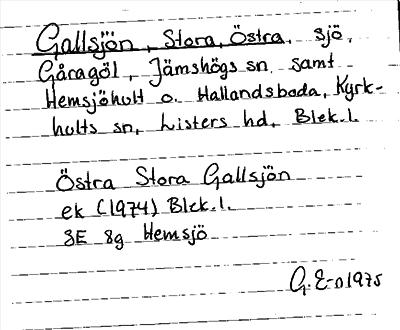 Gallsjön, Stora, Östra, sjö,
Gåragöl, Jämshögs sn samt
Hemsjöhult o. Hallandsboda, Kyrk-
hults sn, Listers hd, Blek.l.
Östra Stora Gallsjön
ek (1974) Blek.l.
3E 8g Hemsjö
G. E-n 1975